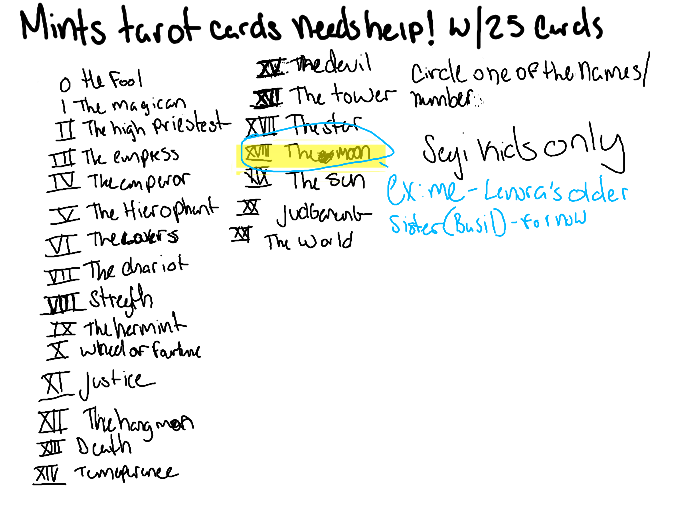 Mints tarot cards needs help! w/25 Cards
0 the Fool
I The magican
II The high Priestest
III The empress
IV The emperor
V The Hierophant
VI The Lovers
VII The chariot
VIII Stregth
IX The hermint
X Wheel of fortune
XI Justice
XII The hangmen
XIII Death
XIV Temperence
XV The devil
XVI The tower
XVII The star
XVIII The moon
XIX The Sun
XX Judgement
XXI The World
Circle one of the Names/
number:
Segi kids only
ex: me - Lenora's older
Sister (Busil) - for now